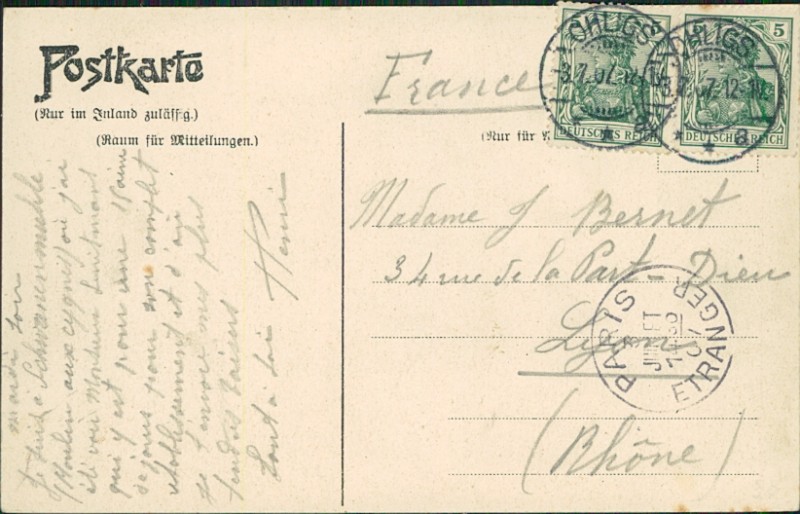 Postkarte
(Nur im Inland zulässig.)
(Raum für Mitteilungen.)
mardi soir
à Schwanenmuhle
(Moulin aux cygnes) où j'ai
été voir Monsieur
qui y est pour une
de jours pour son compte
établissement et d'où
je t'envoie mes plus
tendres baisers
tout à toi Henri
France
(Nur für
OHLIGS
3.7.07.12-1
* * a
DEUTSCHES REICH
OHLIGS
3.7.07.12-1
* * a
5
DEUTSCHES REICH
Madame J Bernet
34 rue de la Part-Dieu
Lyon
(Rhône)
PARIS
JUILLET
07
ETRANGER